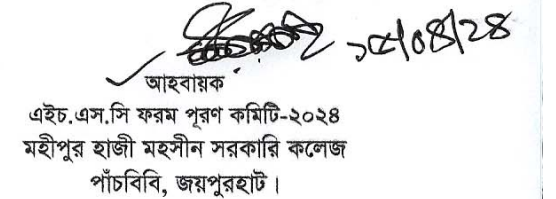 ১৫/০৪/২৪
আহবায়ক
এইচ.এস.সি ফরম পূরণ কমিটি-২০২৪
মহীপুর হাজী মহসীন সরকারি কলেজ
পাঁচবিবি, জয়পুরহাট।